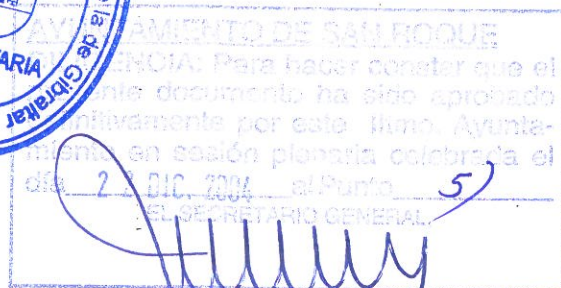 AYUNTAMIENTO DE SAN ROQUE
DILIGENCIA: Para hacer constar que el
presente documento ha sido aprobado
definitivamente por este Iltmo. Ayunta-
miento en sesión plenaria celebrada el
día 22 DIC. 2004 al Punto 5)
EL SECRETARIO GENERAL,
la de Gibraltar